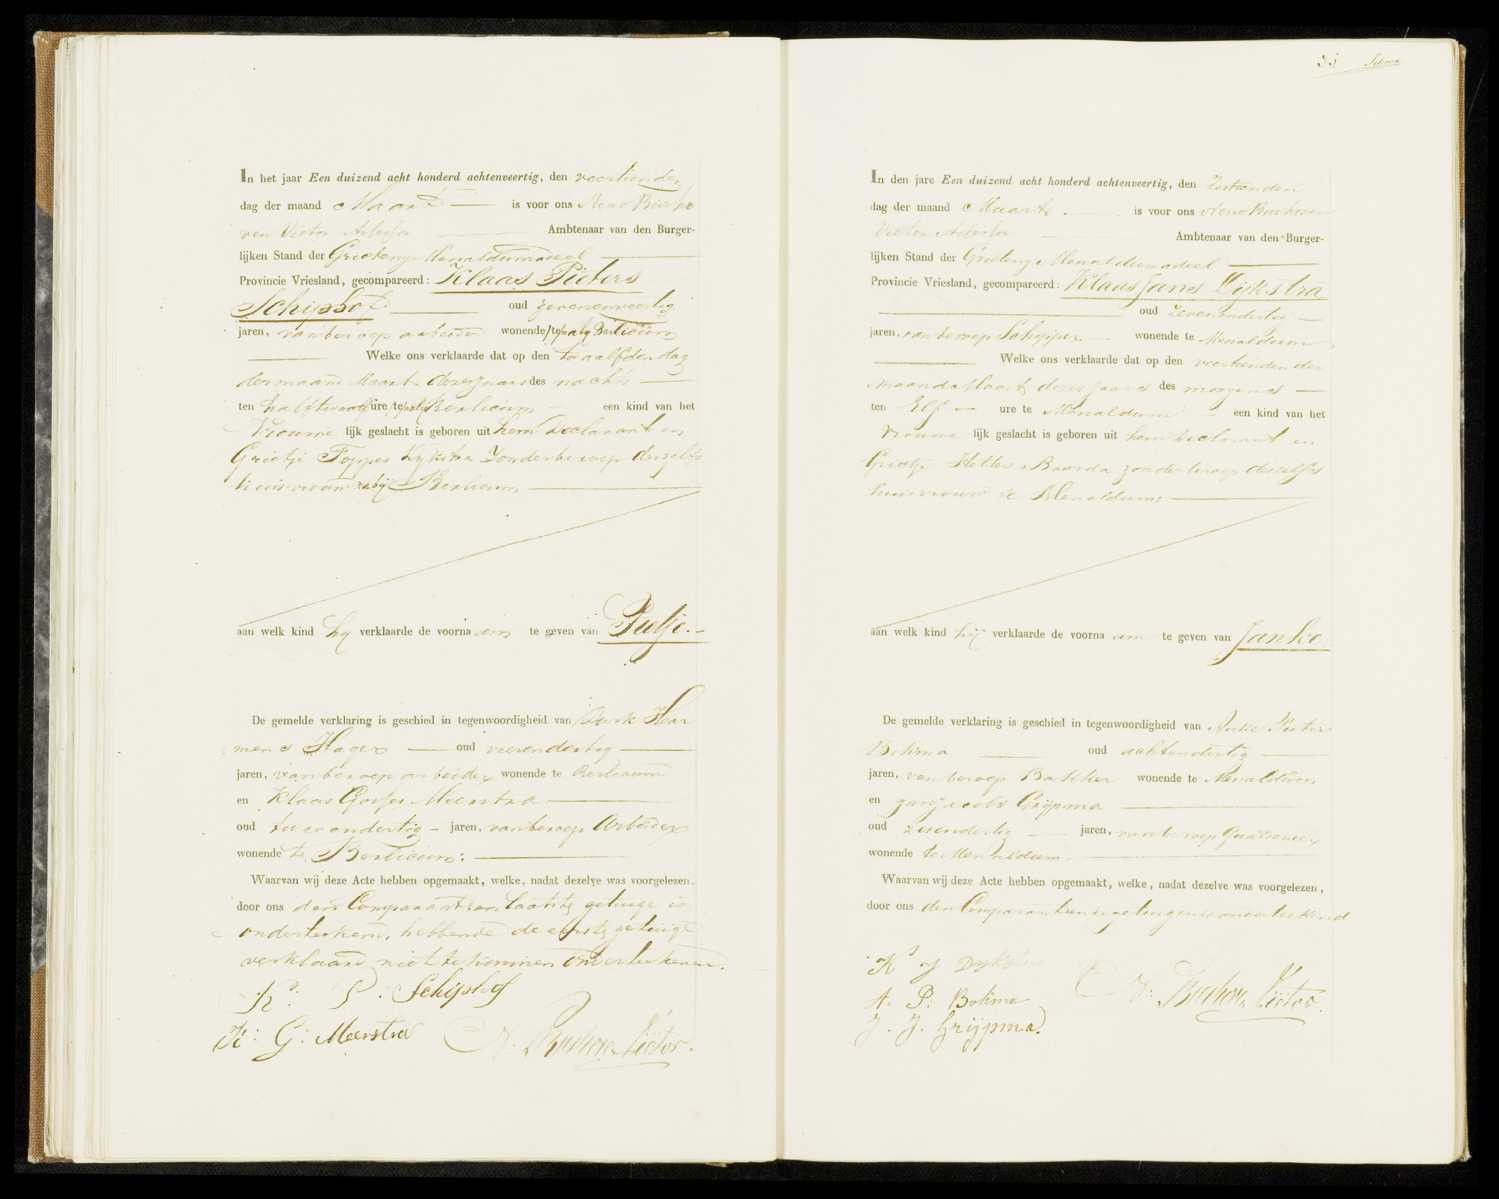 In het jaar Een duizend acht honderd achtenveertig, den veertienden
dag der maand Maart is voor ons Aeno Buche
ren Victor Assessor Ambtenaar van den Burger-
lijken Stand der Grietenij Menaldumadeel
Provincie Vriesland, gecompareerd: Klaas Pieters
Schiphof oud zevenenveertig
jaren, van beroep arbeider wonende te nabij Berlicum
Welke ons verklaarde dat op den twaalfden dag
der maand Maart dezes jaars des nachts
ten half twaalf ure te nabij Berlicum een kind van het
Vrouwe lijk geslacht is geboren uit hem declarant en
Grietje Foppes Dykstra zonder beroep deszelfs
huisvrouw nabij Berlicum
aan welk kind hy verklaarde de voorna am te geven van Pietje.
De gemelde verklaring is geschied in tegenwoordigheid van Durk Har
mens Hager oud vierendertig
jaren, van beroep arbeider wonende te Berlicum
en Klaas Meerstra
oud twee en dertig jaren, van beroep Arbeider
wonende te Berlicum
Waarvan wij deze Acte hebben opgemaakt, welke, nadat dezelve was voorgelezen,
door ons den Comparant en laatste getuige is
onderteekend, hebbende de eerste getuige
verklaard niet te kunnen onderteekenen.
K: P. Schiphof
K: G: Meerstra A. Buchere Victor.
35
In den jare Een duizend acht honderd achtenveertig, den Zestienden
dag der maand Maart is voor ons Aeno Bucheren
Victor Assessor Ambtenaar van den Burger-
lijken Stand der Grietenij Menaldumadeel
Provincie Vriesland, gecompareerd: Klaas Jans Dijkstra
oud zevenendertig
jaren, van beroep Schipper wonende te Menaldum
Welke ons verklaarde dat op den veertienden der
maand Maart dezes jaars des morgens
ten Elf ure te Menaldum een kind van het
Vrouwe lijk geslacht is geboren uit hem declarant en
Grietje Baarda zonder beroep deszelfs
huisvrouw te Menaldum
aan welk kind hij verklaarde de voorna am te geven van Janke
De gemelde verklaring is geschied in tegenwoordigheid van Anne Pieters
Bokma oud achtendertig
jaren, van beroep Bakker wonende te Menaldum
en Jan Jacobs Grijpma
oud zesendertig jaren, van beroep
wonende te Menaldum
Waarvan wij deze Acte hebben opgemaakt, welke, nadat dezelve was voorgelezen,
door ons den Comparant en de getuigen is onderteekend
K J Dykstra
A. P: Bokma A: Buchere Victor.
J. J. Grijpma.